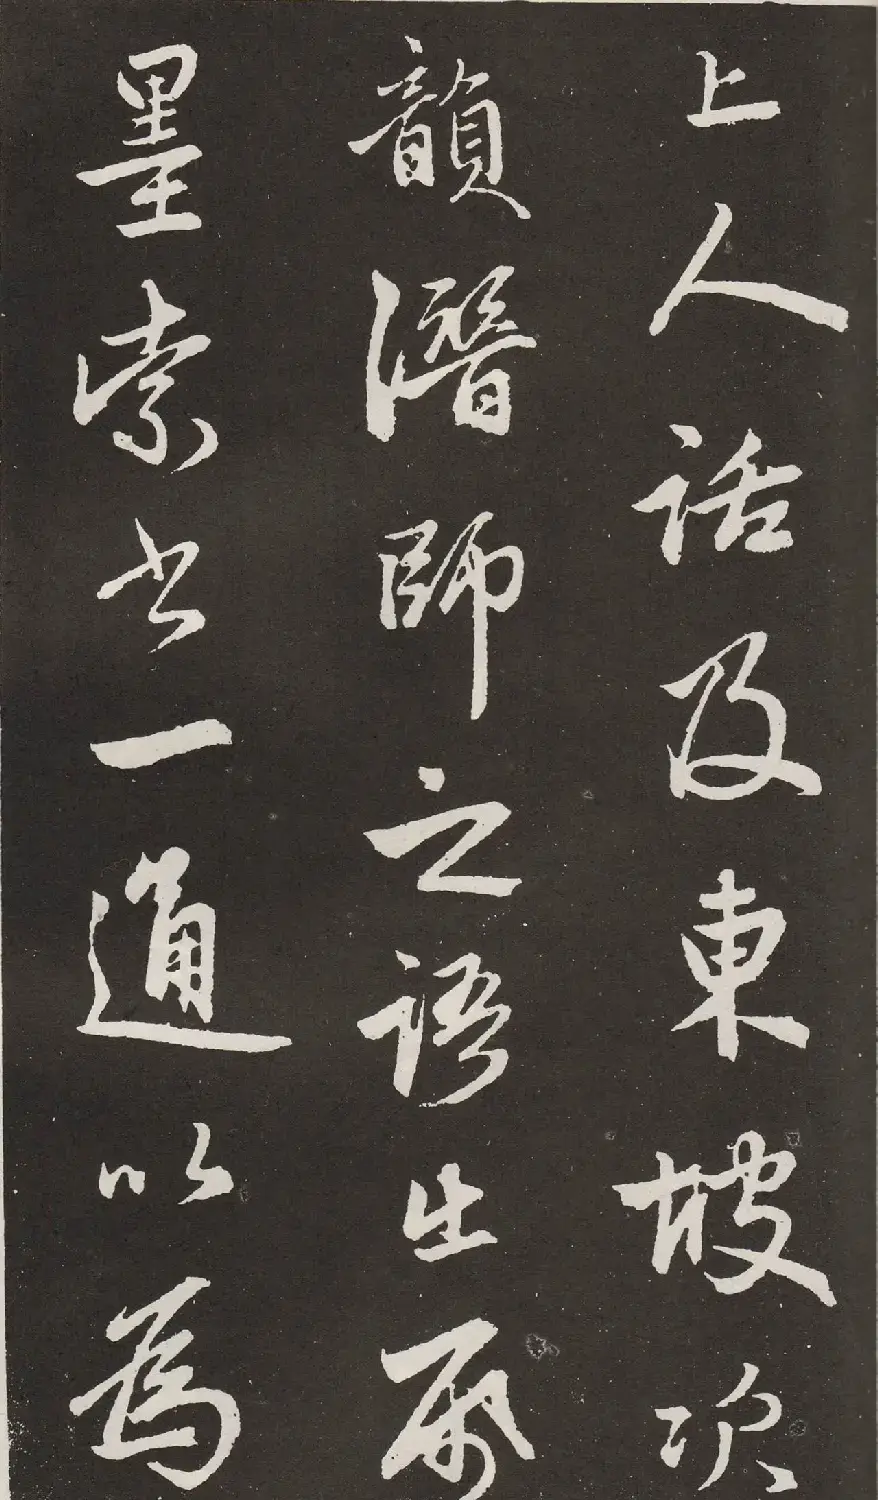 上人話及東坡次
韻潛師之語出
墨索書一通以為